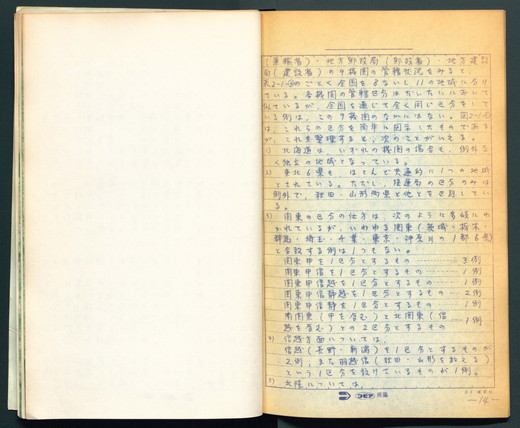 (農務省)・地方郵政局(郵政省)・地方建設
局(建設省)の9機関の管轄状況をみると、
のごとく全国を8ないし11の地域に分け
ている。各機関の管轄区分はだいたいにおいて
似ているが、全国を通じて全く同じ区分をして
いる例は、この9機関のなかにはない。図2-1-
は、これらの区分を簡単に図示したものであ
が、これを整理すると、次のことがいえる。
1) 北海道は、いずれの機関の場合も、例外な
く独立の地域となっている。
2) 東北6県も、ほとんど共通的に1つの地域
とされている。ただし、陸運局の区分のみは
例外で、秋田・山形両県と他とを区別してい
る。
3) 関東の区分の仕方は、次のように多岐にわ
かれているが、いわゆる関東(茨城・栃木・
群馬・埼玉・千葉・東京・神奈川の1都6県)
と合致する例は1つもない。
関東甲を1区分とするもの 3例
関東甲信を1区分とするもの 1例
関東甲信越を1区分とするもの 1例
関東甲信静越を1区分とするもの 2例
関東甲信静を1区分とするもの 1例
南関東(甲を含む)と北関東(信
越を含む)との2区分とするもの 1例
4) 信越方面については、
信越(長野・新潟)を1区分とするものが
2例、また羽越信(秋田・山形を加える)
という1区分を設けているものが1例。
5) 北陸については、
コピア
-14-